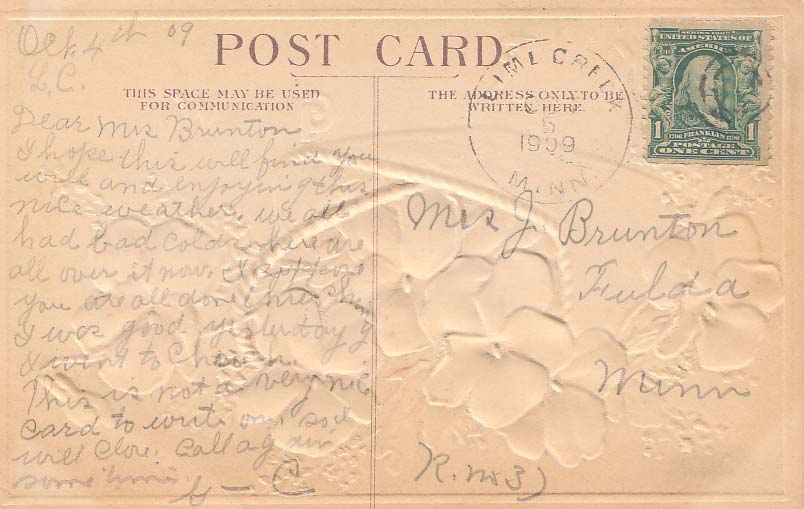 Oct. 4th 09
L.C.
POST CARD
THIS SPACE MAY BE USED
FOR COMMUNICATION
THE ADDRESS ONLY TO BE
WRITTEN HERE.
LIME CREEK
5
1909
MINN.
SERIES 1902
UNITED STATES OF
AMERICA
1 1
1706 FRANKLIN 1790
POSTAGE
ONE CENT
Dear Mrs Brunton
I hope this will find you
well and enjoying this
nice weather. we all
had bad colds here are
all over it now. I suppose
you are all done thres
I was good yesterday
I went to
This is not a very nice
card to write on so I
will close. Call again
some time.
G - C
Mrs J. Brunton
Fulda
Minn
R. no 3)